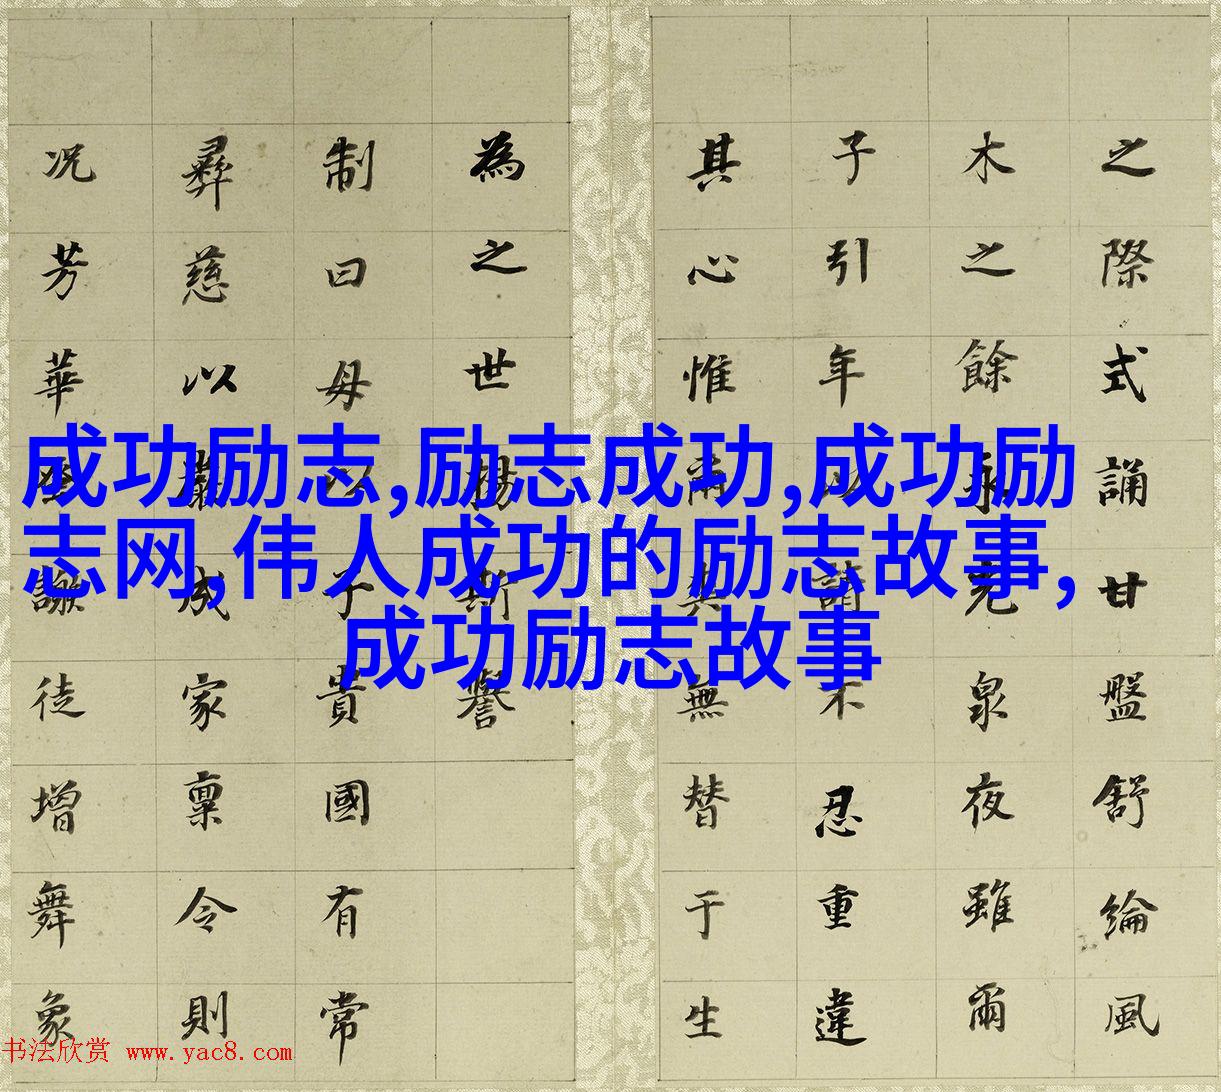 之際式誦廿盤舒綸風
木之餘永克泉夜雖爾
子引年以請不忍重違
其心惟爾無替于生
為之世揚斯譽
制曰母以子貴國有常
彝慈以嚴成家稟令則
况芳華謝徒增舞象
成功励志,励志成功,成功励
志网,伟人成功的励志故事,
成功励志故事
书法欣赏 www.yac8.com